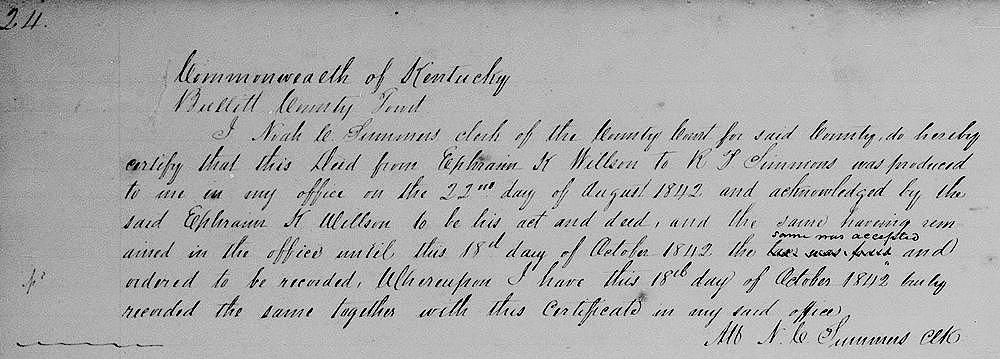 24.
Commonwealth of Kentucky
Bullitt County Towit
I Noah C. Summers clerk of the County Court for said County, do hereby
certify that this Deed from Ephraim K Willson to R F Simmons was produced
to me in my office on the 22nd day of august 1842 and acknowledged by the
said Ephraim K Willson to be his act and deed, and the same haveing rem
ained in the office until this 18th day of October 1842 the same was accepted and
ordered to be recorded, Whereupon I have this 18th day of October 1842 truly
recorded the same together with this Certificate in my said office
Att N. C Summers Clk